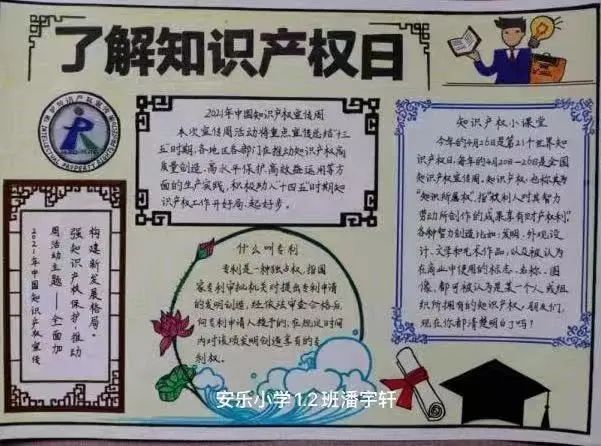 了解知识产权日
2021年中国知识产权宣传周
本次宣传周活动将重点宣传总结“十三
五”时期,各地区各部门在推动知识产权高
质量创造、高水平保护高效益运用等方
面的生产实践,积极助入“十四五”时期知
识产权工作开好局、起好步。
知识产权小课堂
今年的4月26日是第21个世界知
识产权日,每年的4月20日-26日是全国
知识产权宣传周。知识产权,也称其为
“知识所属权”,指“权利人对其智力
劳动所创作的成果享有财产权利”。
各种智力创造比如:发明、外观设
计、文学和艺术作品,以及被认为
在商业中使用的标志、名称、图
像,都可被认为是某一个人或组
织所拥有的知识产权,朋友们,
现在你都清楚明白了吗!
构建新发展格局。
强知识产权保护,推动
周活动主题——全面加
2021年中国知识产权宣传
什么叫专利
专利是一种独占权,指国
家专利审批机关对提出专利申请
的发明创造,经依法审查合格后
向专利申请人授予的,在规定时间
内对该项发明创造享有的专
利权。
安乐小学1.2班潘宇轩